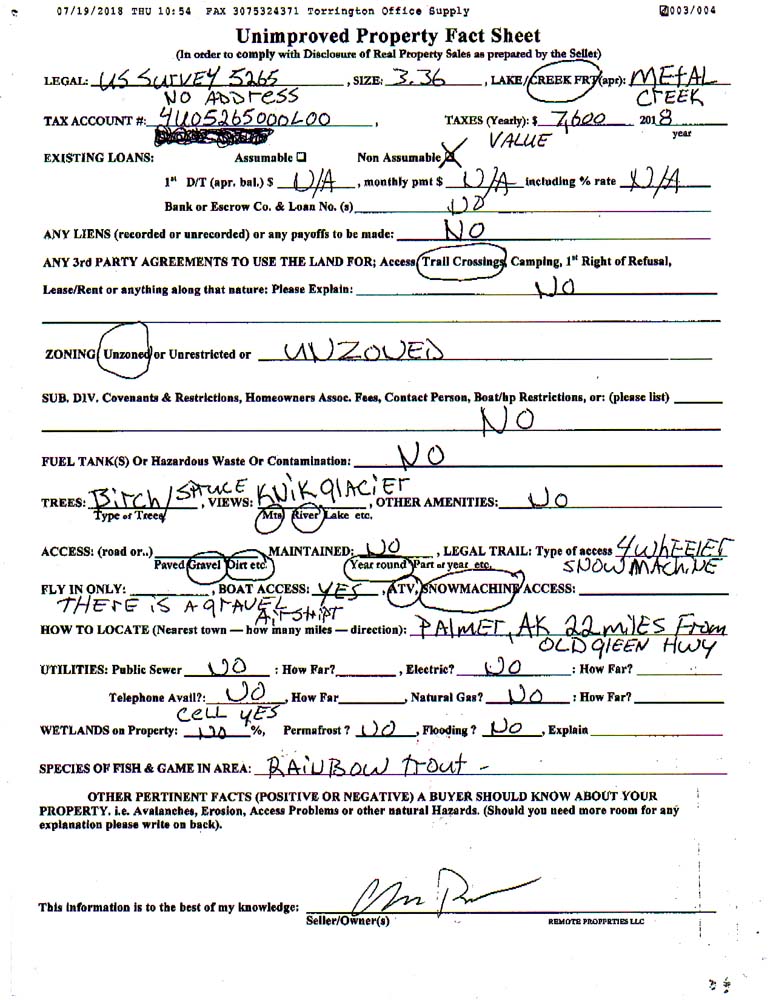 07/19/2018 THU 10:54 FAX 3075324371 Torrington Office Supply 003/004
Unimproved Property Fact Sheet
(In order to comply with Disclosure of Real Property Sales as prepared by the Seller)
LEGAL: US SURVEY 5265, SIZE: 3.36, LAKE/CREEK FRT(apr): METAL
NO ADDRESS CREEK
TAX ACCOUNT #: 4U05265000L00, TAXES (Yearly): $ 7,600 2018
VALUE year
EXISTING LOANS: Assumable ☐ Non Assumable ☒
1st D/T (apr. bal.) $ N/A, monthly pmt $ N/A including % rate N/A
Bank or Escrow Co. & Loan No. (s) NO
ANY LIENS (recorded or unrecorded) or any payoffs to be made: NO
ANY 3rd PARTY AGREEMENTS TO USE THE LAND FOR; Access, Trail Crossings, Camping, 1st Right of Refusal,
Lease/Rent or anything along that nature: Please Explain: NO
ZONING Unzoned or Unrestricted or UNZONED
SUB. DIV. Covenants & Restrictions, Homeowners Assoc. Fees, Contact Person, Boat/hp Restrictions, or: (please list)
NO
FUEL TANK(S) Or Hazardous Waste Or Contamination: NO
TREES: Birch/SPRUCE, VIEWS: KNIK GLACIER, OTHER AMENITIES: NO
Type of Trees Mts River Lake etc.
ACCESS: (road or..) MAINTAINED: NO, LEGAL TRAIL: Type of access 4WHEELER
Paved Gravel Dirt etc. Year round Part of year etc. SNOWMACHINE
FLY IN ONLY: , BOAT ACCESS: YES, ATV, SNOWMACHINE ACCESS:
THERE IS A GRAVEL AIRSTRIP
HOW TO LOCATE (Nearest town — how many miles — direction): PALMER, AK 22 MILES From
OLD GLEEN HWY
UTILITIES: Public Sewer NO : How Far? , Electric? NO : How Far?
Telephone Avail?: NO, How Far , Natural Gas? NO : How Far?
CELL YES
WETLANDS on Property: NO %, Permafrost ? NO, Flooding ? NO, Explain
SPECIES OF FISH & GAME IN AREA: RAINBOW TROUT -
OTHER PERTINENT FACTS (POSITIVE OR NEGATIVE) A BUYER SHOULD KNOW ABOUT YOUR
PROPERTY. i.e. Avalanches, Erosion, Access Problems or other natural Hazards. (Should you need more room for any
explanation please write on back).
This information is to the best of my knowledge:
Seller/Owner(s) REMOTE PROPERTIES LLC